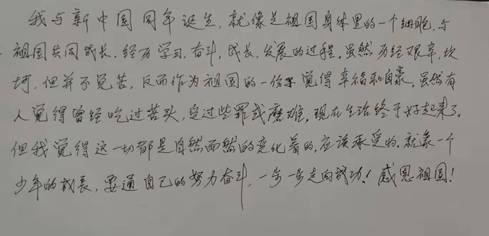 我与新中国同年诞生,就像是祖国身体里的一个细胞,与
祖国共同成长,经历学习,奋斗,成长,发展的过程,虽然历经艰辛,坎
坷,但并不觉苦,反而作为祖国的一份子觉得幸福和自豪,虽然有
人觉得曾经吃过苦头,受过些罪或磨难,现在生活终于好起来了,
但我觉得这一切都是自然而然的变化着的,应该承受的,就象一个
少年的成长,要通自己的努力奋斗,一步一步走向成功!感恩祖国!